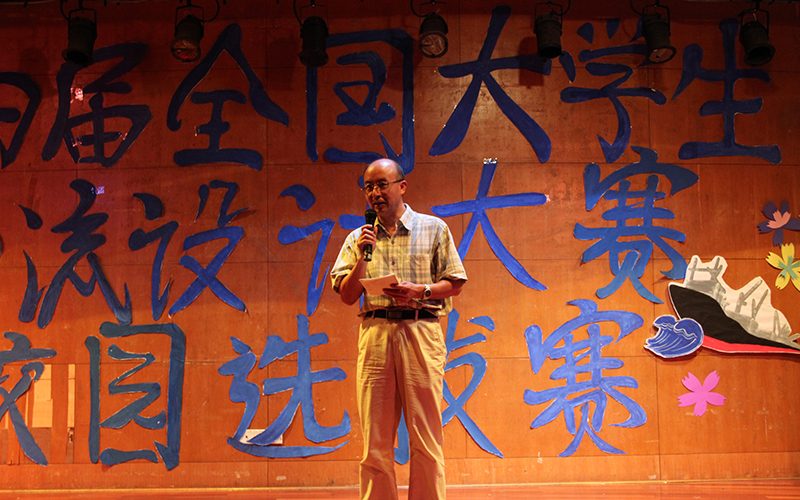 四届全国大学生
流设计大赛
校园选拔赛